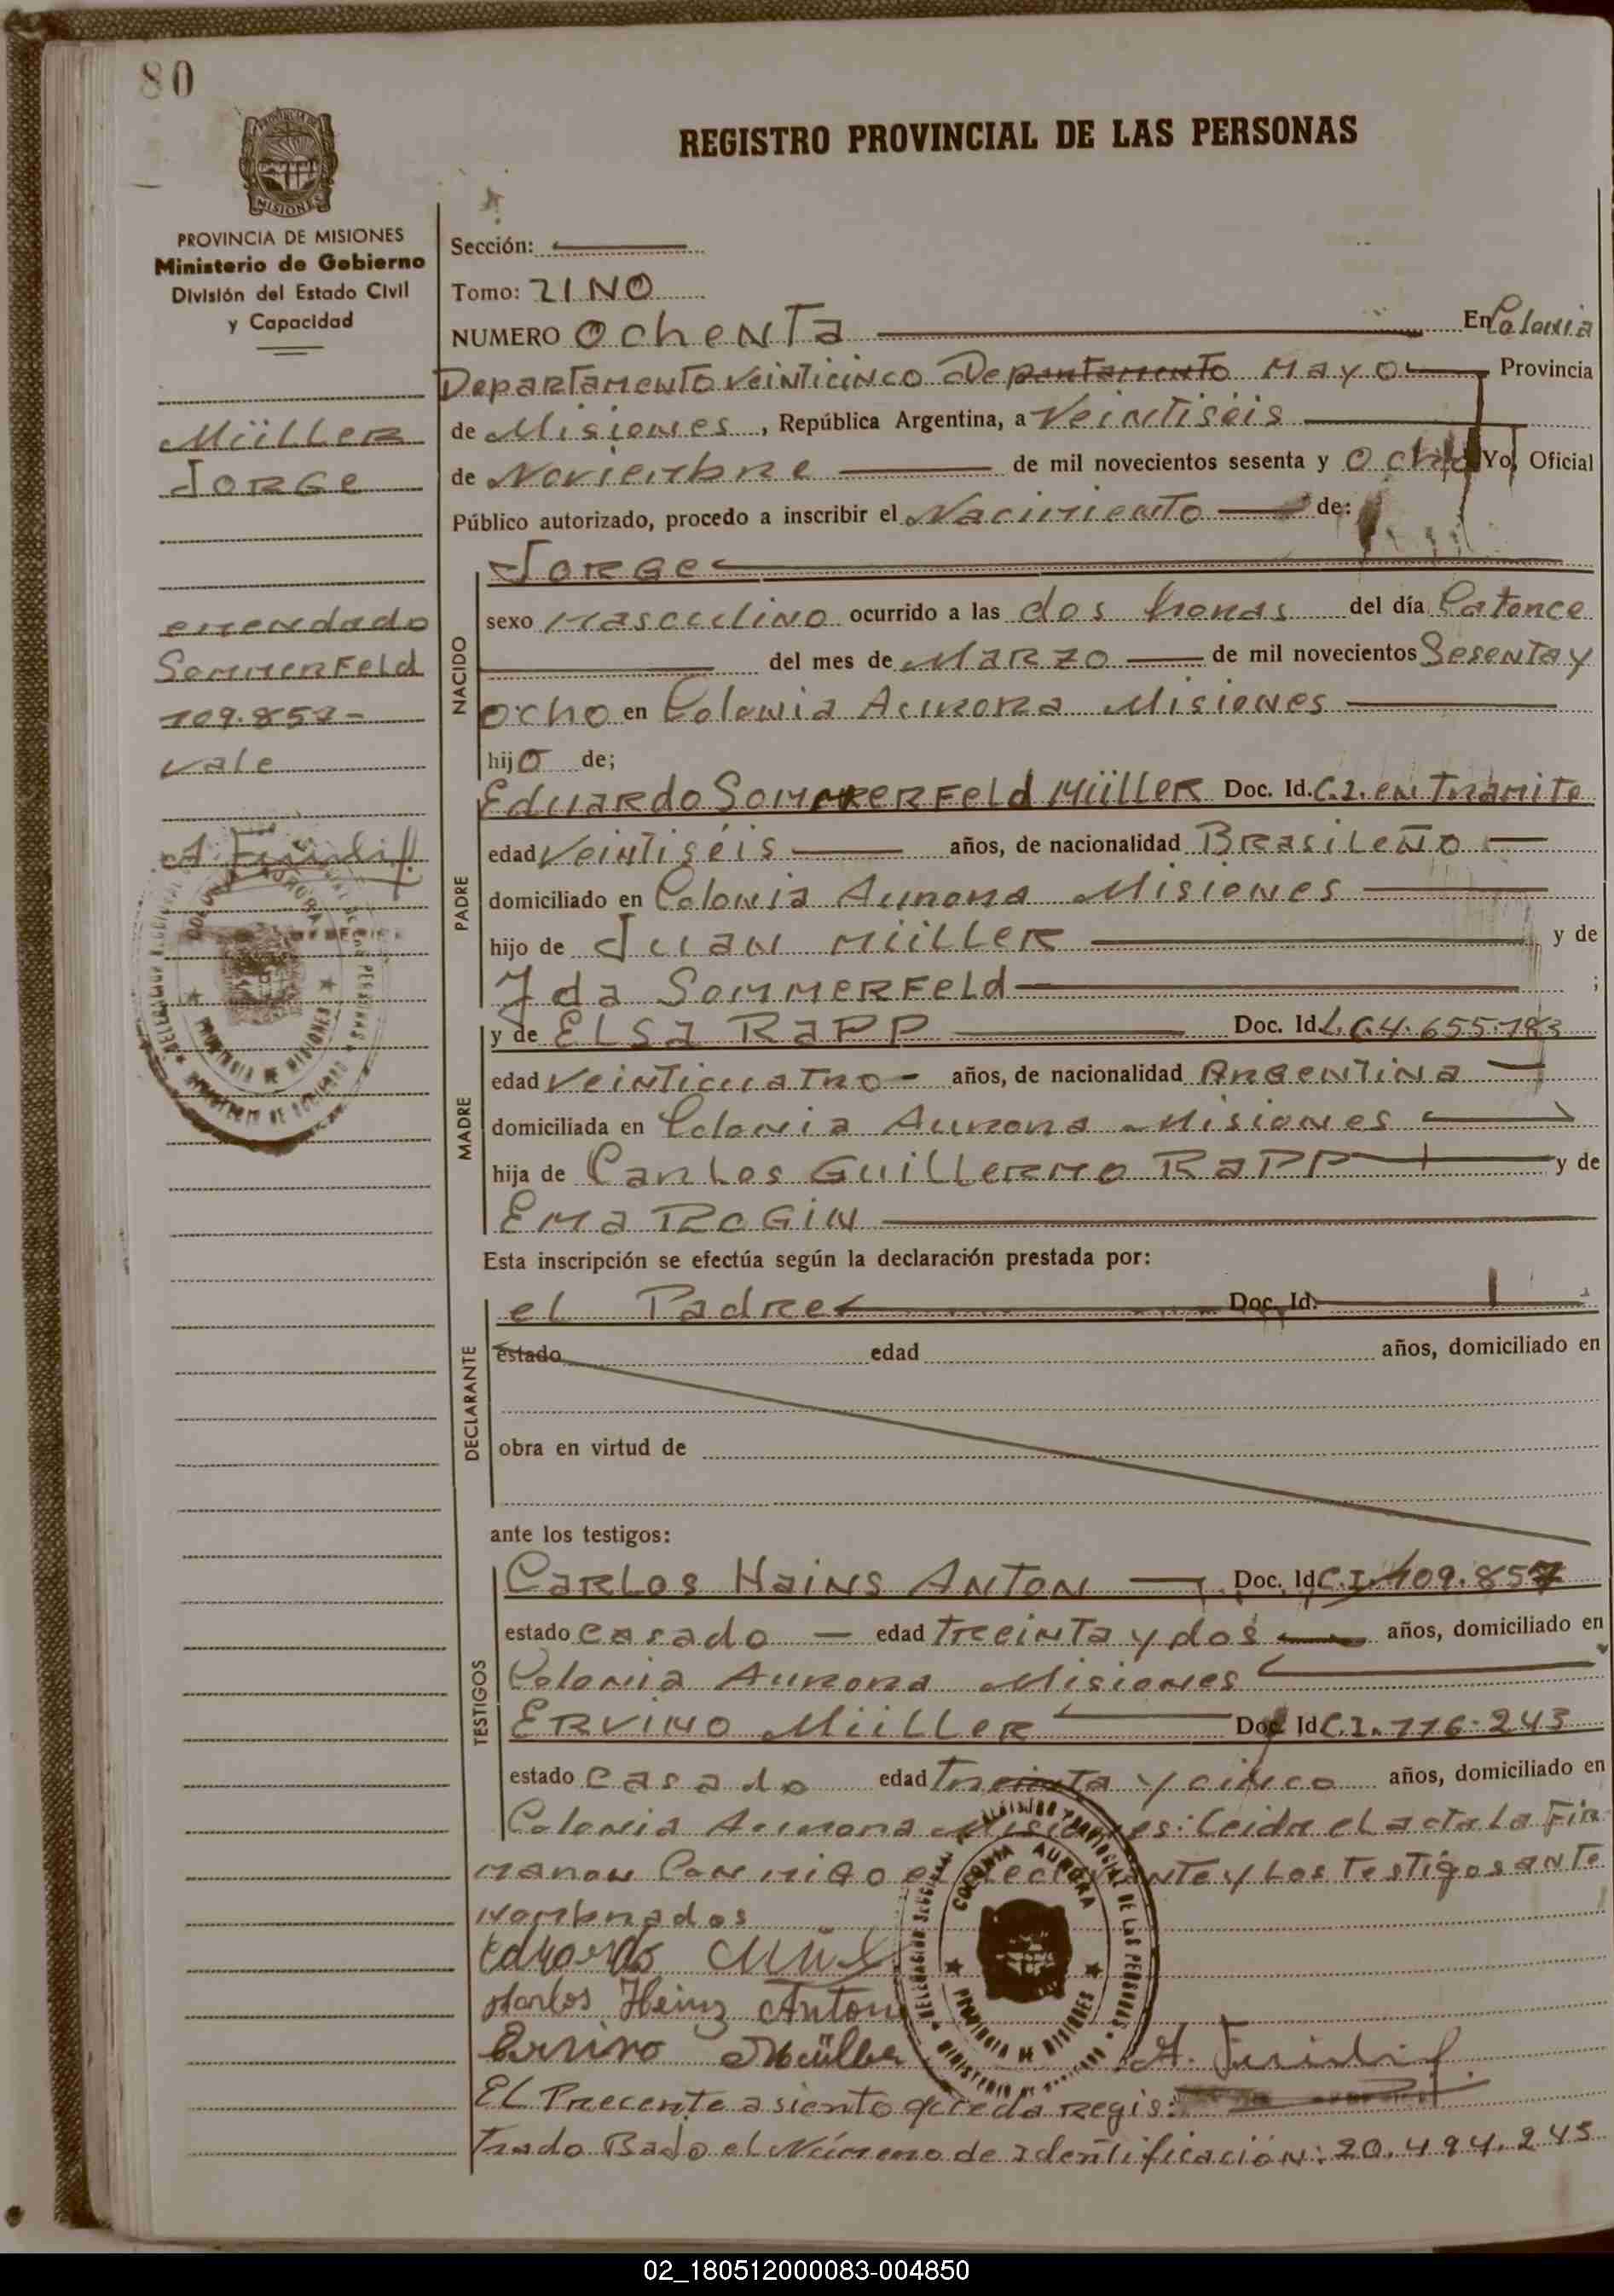 80
REGISTRO PROVINCIAL DE LAS PERSONAS
PROVINCIA DE MISIONES
MISIONES
PROVINCIA DE MISIONES
Ministerio de Gobierno
División del Estado Civil
y Capacidad
Müller
Jorge
emendado
Sommerfeld
109.857-
vale
Sección:
Tomo: UNO
NUMERO Ochenta En Colonia
Departamento Veinticinco De Mayo Provincia
de Misiones, República Argentina, a Veintiséis
de Noviembre de mil novecientos sesenta y Ocho Yo, Oficial
Público autorizado, procedo a inscribir el Nacimiento de:
NACIDO
Jorge
sexo Masculino ocurrido a las dos horas del día Catorce
del mes de Marzo de mil novecientos Sesenta y
ocho en Colonia Aurora Misiones
hijo de;
PADRE
Eduardo Sommerfeld Müller Doc. Id. C.I. en Tramite
edad Veintiséis años, de nacionalidad Brasileño
domiciliado en Colonia Aurora Misiones
hijo de Juan Müller y de
Ida Sommerfeld ;
MADRE
y de Elsa Rapp Doc. Id. L.C. 4.655.783
edad Veinticuatro - años, de nacionalidad Argentina
domiciliada en Colonia Aurora Misiones
hija de Carlos Guillermo Rapp y de
Ema Rogin
Esta inscripción se efectúa según la declaración prestada por:
DECLARANTE
el Padre Doc. Id.
estado edad años, domiciliado en
obra en virtud de
ante los testigos:
TESTIGOS
Carlos Hains Anton Doc. Id C.I. 109.857
estado Casado edad Treinta y dos años, domiciliado en
Colonia Aurora Misiones
Ervino Müller Doc. Id C.I. 116.243
estado Casado edad Treinta y cinco años, domiciliado en
Colonia Aurora Misiones: Leida el acta La Fir
maron Conmigo el declarante y Los Testigos ante
nombrados
Eduardo Müller
Karlos Heinz Anton
Ervino Müller
COLONIA AURORA
PROVINCIA DE MISIONES
El Precente asiento queda Regis:
Trado Bajo el Número de identificación: 20.494.245
02_180512000083-004850